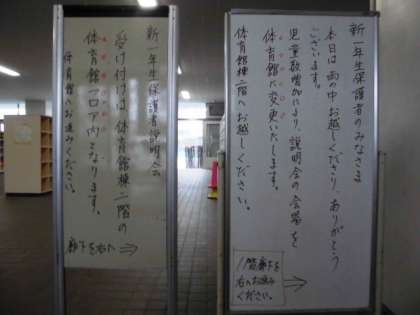 新一年生保護者のみなさま
本日は雨の中お越しくださり、ありがとう
ございます。
児童数増加により、説明会の会場を
体育館に変更いたします。
体育館棟二階へお越しください。
廊下を
右へお進み
ください。
新一年生保護者説明会
受け付けは、体育館棟二階の
体育館フロア内となります。
体育館へお進みください。
廊下を右へ